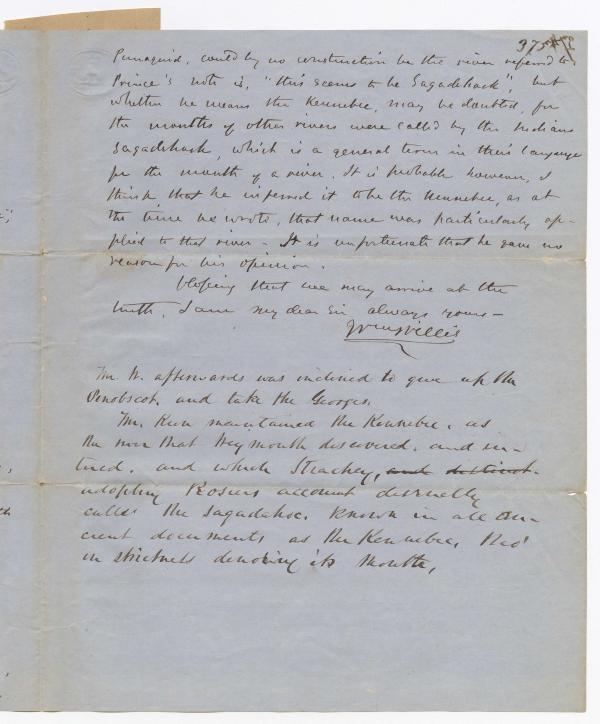 375
Pemaquid, could by no construction be the river referred to
Prince's note is, "this seems to be Sagadehock"; but
whether he means the Kennebec, may be doubted, for
the mouths of other rivers were called by the Indians
Sagadehock, which is a general term in their language
for the mouth of a river. It is probable however, I
think that he inferred it to be the Kennebec, as at
the time he wrote, that name was particularly ap-
plied to that river - It is unfortunate that he gave no
reason for his opinion.
Hoping that we may arrive at the
truth, I am my dear Sir always yours -
Wm Willis
Mr. W. afterwards was inclined to give up the
Penobscot, and take the Georges.
Mr. maintained the Kennebec, as
the river that Weymouth discovered, and en-
tered, and which Strachey, and distinct
adopting Rosiers account
calls the Sagadahoc, known in all an-
cient documents as the Kennebec, tho'
in strictness denoting its mouth,